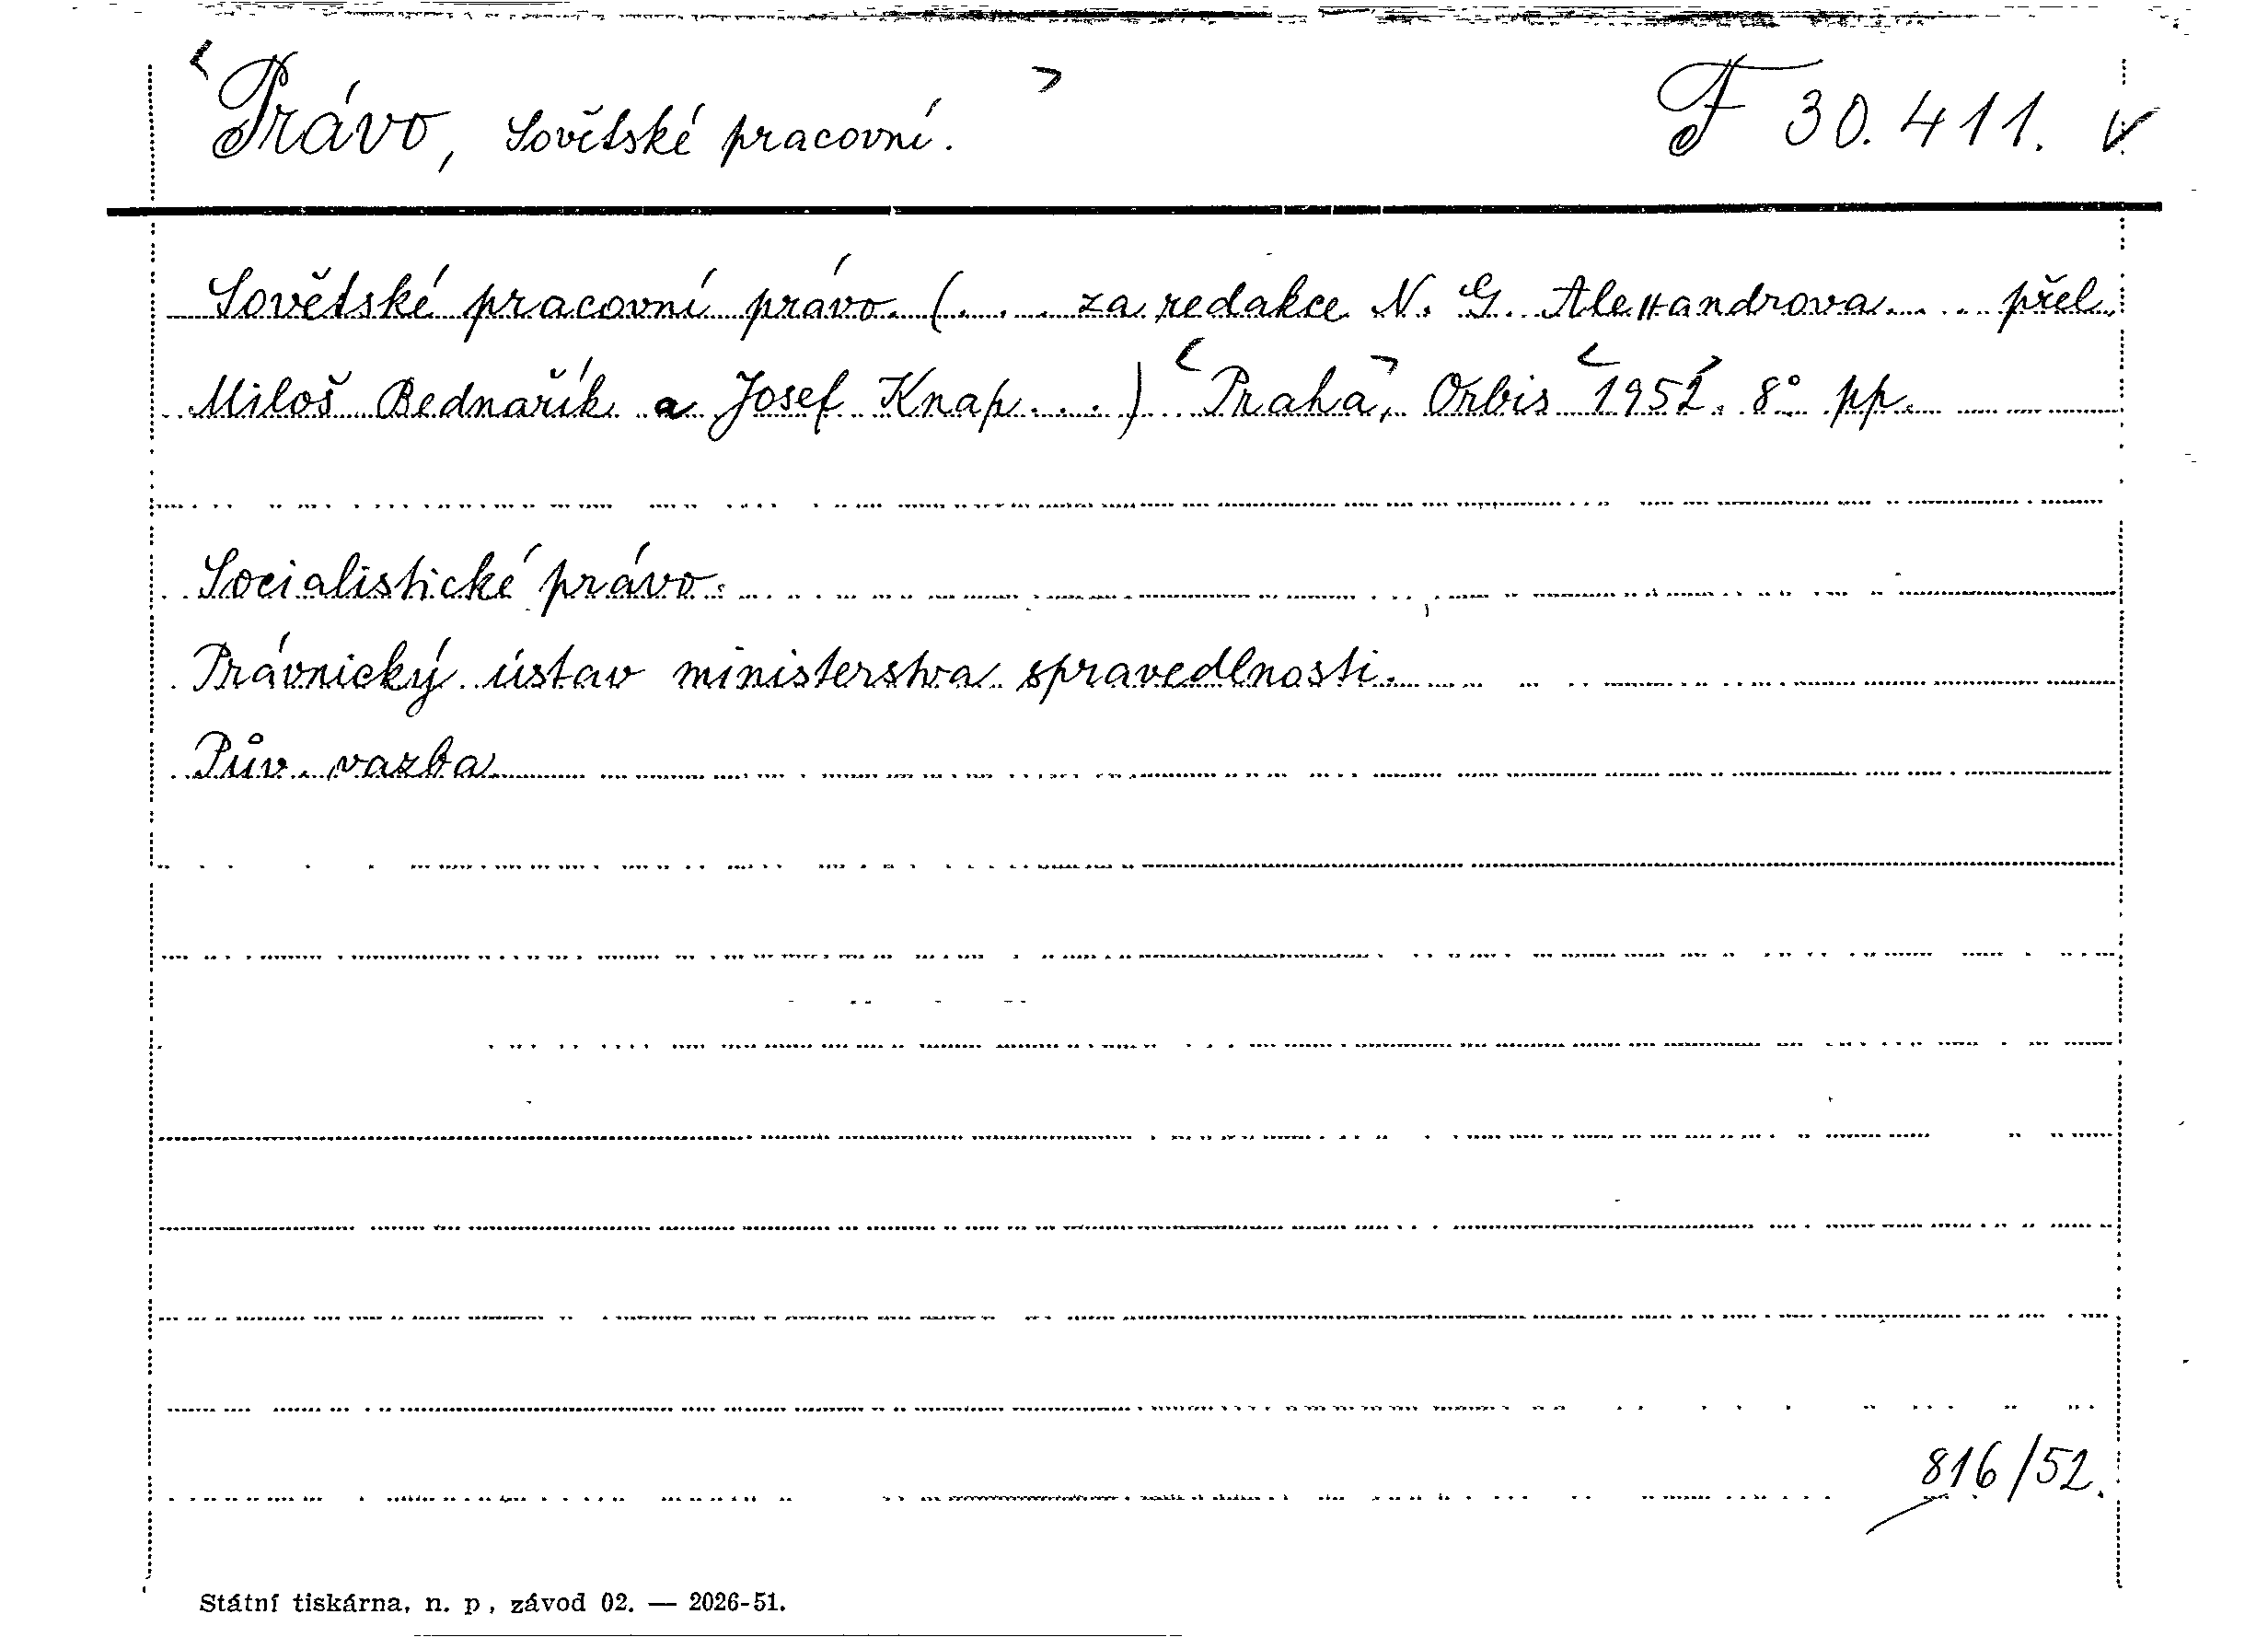 <Právo, Sovětské pracovní.> F 30.411. v
Sovětské pracovní právo. (... za redakce N. G. Alexandrova... přel.
Miloš Bednařík a Josef Knap...) <Praha>, Orbis <1952>. 8° pp.
Socialistické právo.
Právnický ústav ministerstva spravedlnosti.
Pův. vazba
816/52.
Státní tiskárna, n. p., závod 02. — 2026-51.